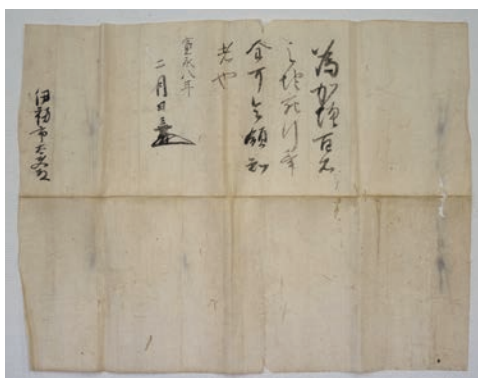 為加増百石
之地宛行畢
全可令領知
者也
寛永八年
二月日